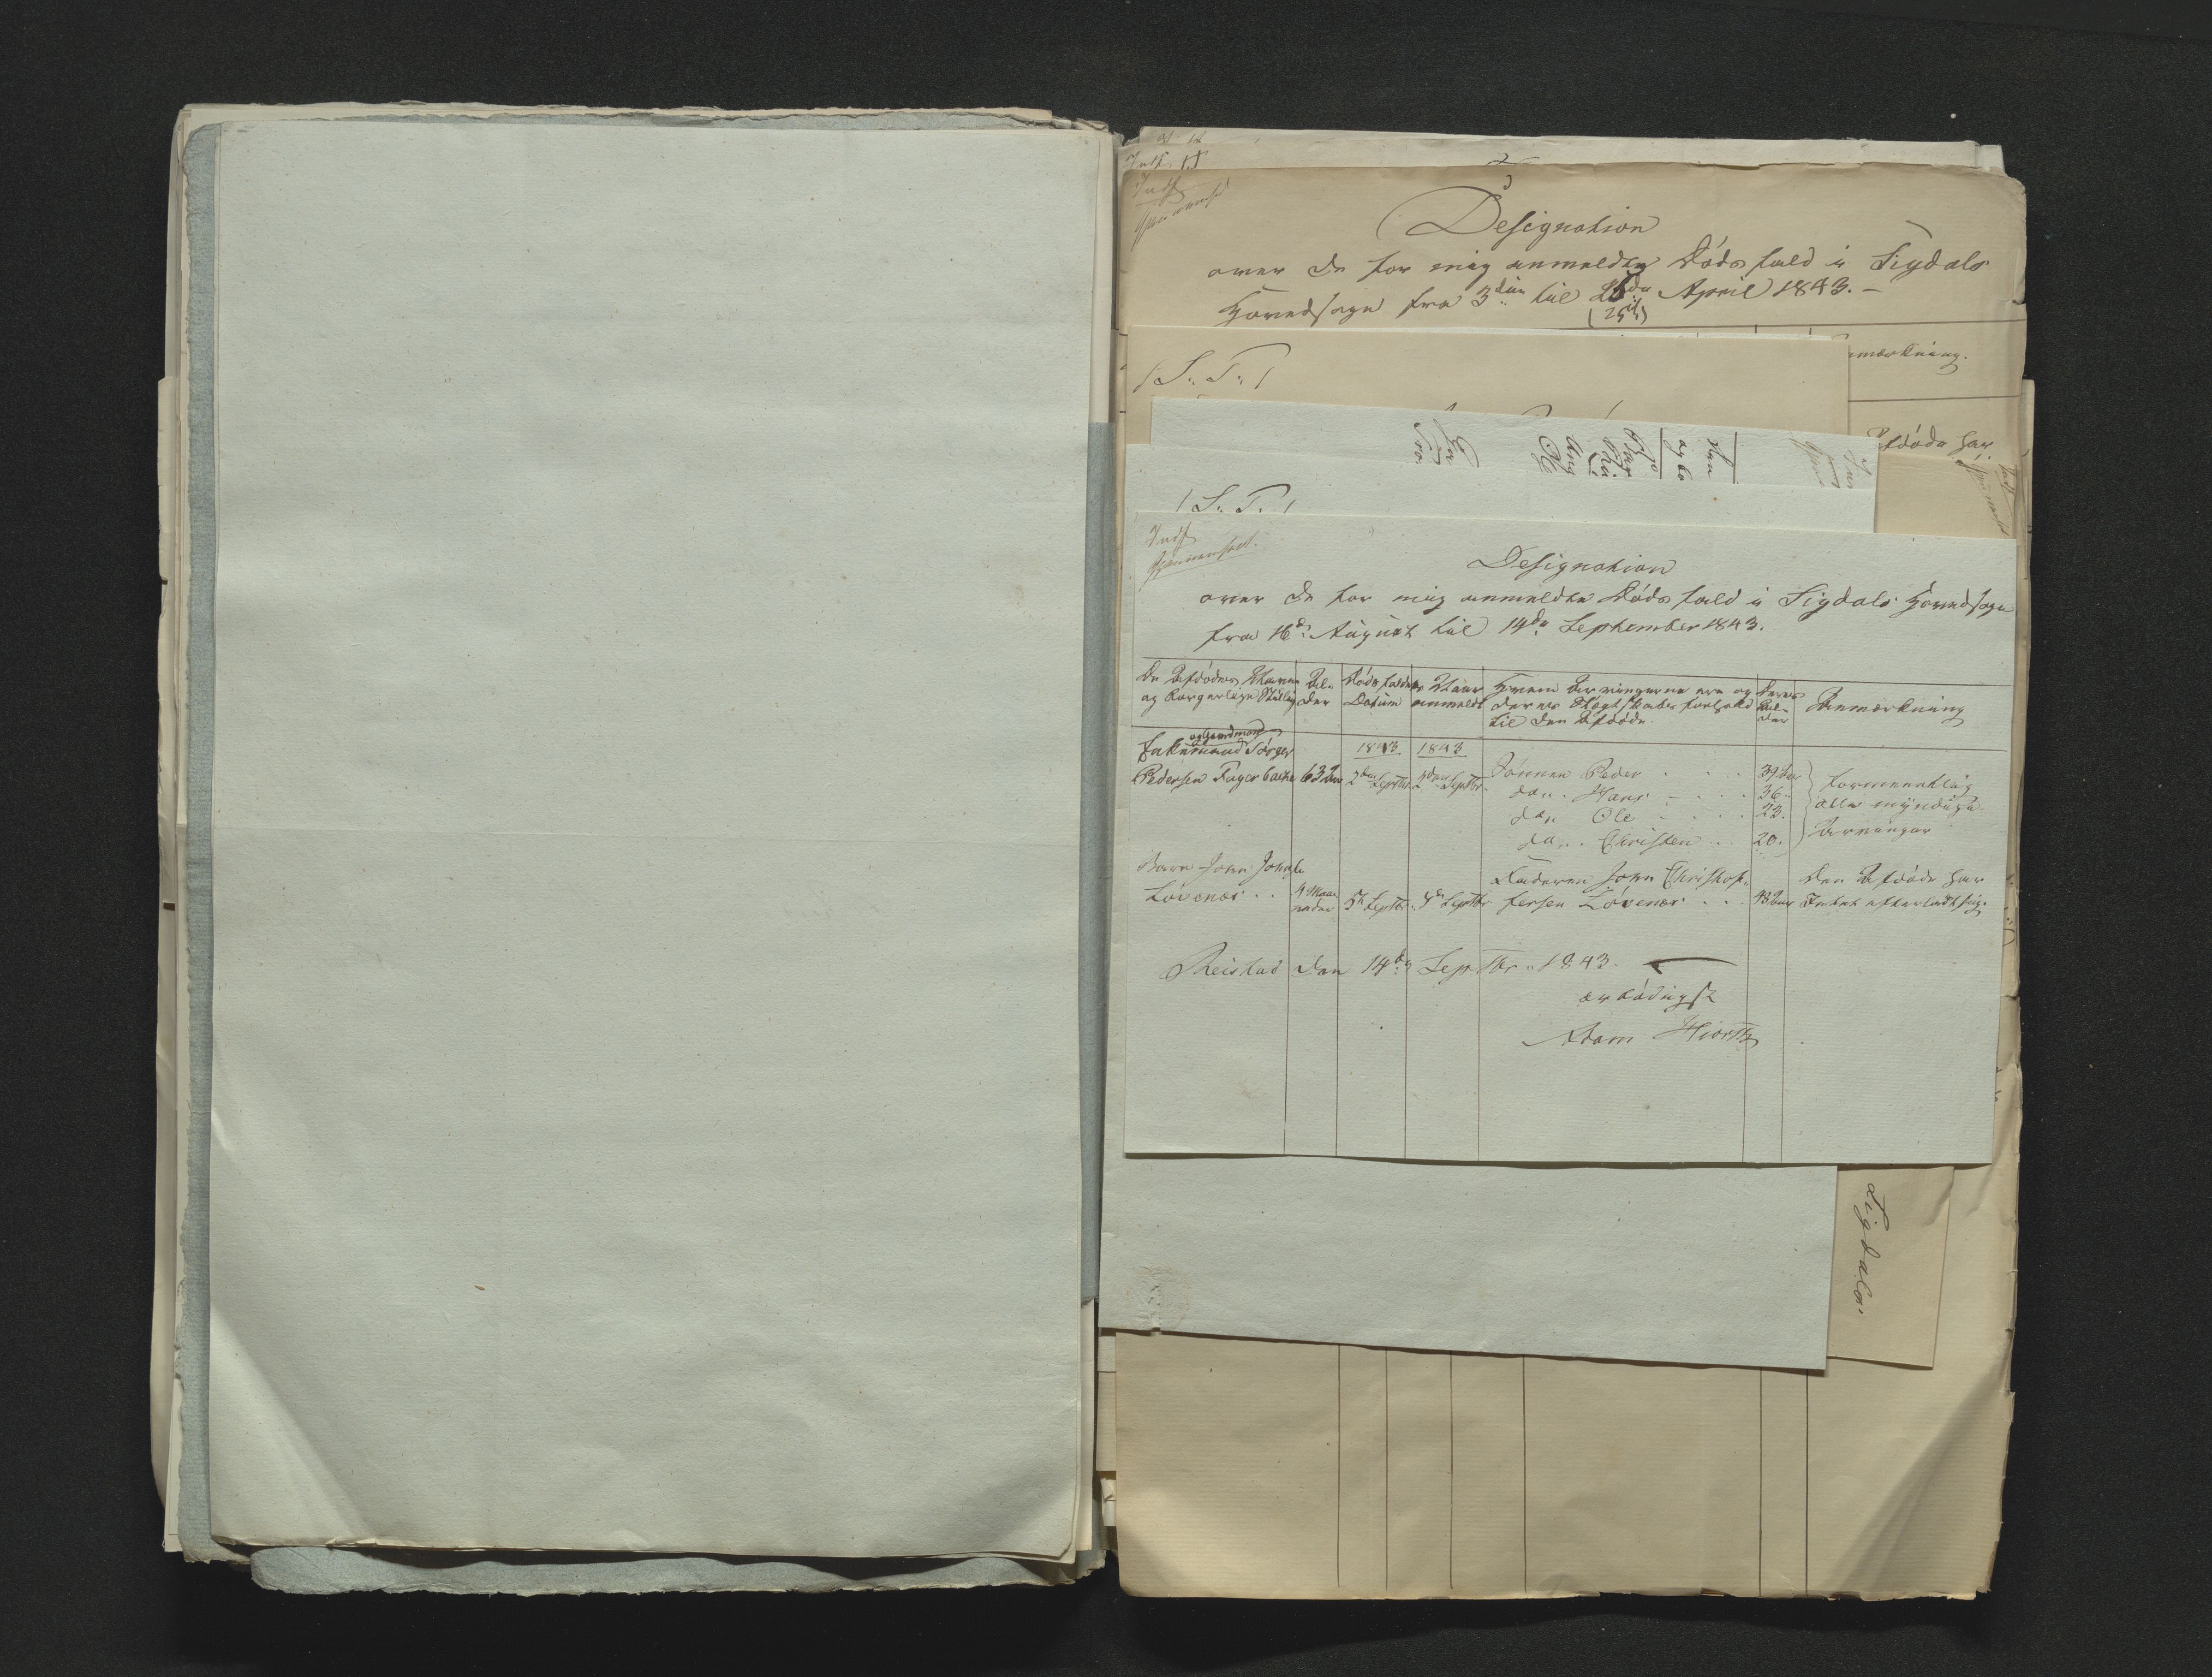 Designation
over de for mig anmeldte Dødsfald i Sigdals
Hovedsogn fra 3die til April 1843. –
(25de)
Anmærkning.
/S. T./
Afdøde har
/S. T./
Indf
Designation
over de for mig anmeldte Dødsfald i Sigdals Hovedsogn
fra 16de August til 14de September 1843.
De Afdødes Navne og borgerlige Stilling
Alder
Dødsfaldets Datum
Naar anmeldt
Hvem Arvingerne ere og deres Slægtskabs forhold til den Afdøde.
Deres Alder
Anmærkning
og Gaardmand
1843 1843
Pedersen Fagerbakke 63 Aar 2den Septbr. 2den Septbr. Sønnen Peder 39 Aar formeentlig
do. Hans 36. alle myndige
do. Ole 23. Arvinger
do. Christen 20.
Barn John Johns. Faderen John Christof- Den Afdøde har
Løvenæs 4 Maaneder 5te Septbr. Septbr. fersen Løvenæs 43 Aar Intet efterladt sig.
Reistad den 14de Septbr. 1843.
ærbødigst
Adam Hiorth
Sigdals.